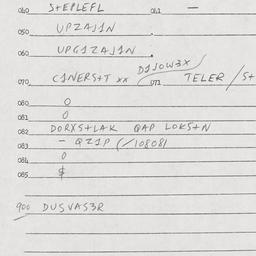 040 S+EPLEFL 041 —
050 UPZAJ1N .
060 UPG1ZAJ1N .
D1JOW3X
070 C1NERS+T xx 071 TELER / S+
080 0
081 0
082 DORX5+LAK QAP LOKS+N
083 — QZ1P (/10808)
084 0
085 $
900 DUSVAS3R